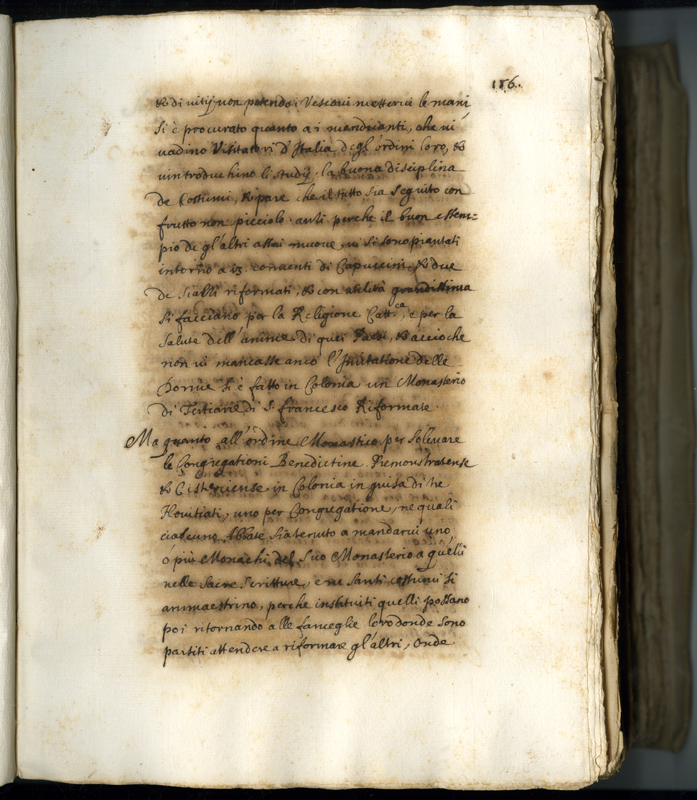 186.
& di vitij non potendo i Vescovi mettervi le mani
si è procurato quanto a i mendicanti, che vi
vadino Visitatori d'Italia degl'ordini loro, &
vintroduchino li studij, la buona disciplina
de Costumi, & pare che il tutto sia seguito con
frutto non picciolo, anti perche il buon essem=
pio de gl'altri assai muove, vi si sono piantati
intorno a 13. conventi di Capuccini, & due
de Scalzi riformati, & con utilità grandissima
si facciano per la Religione Catt.ca, e per la
salute dell'anime di quei Paesi, & accioche
non vi mancasse anco l'Imitatione delle
Donne si è fatto in Colonia un Monasterio
di Tertiarie di S. Francesco Riformate.
Ma quanto all'ordine Monastico per sollevare
le Congregationi Benedictine, Premonstratense
& Cisterciense in Colonia in guisa di tre
Novitiati, uno per Congregatione, ne quali
ciascuno Abbate sia tenuto a mandarvi uno,
ò più Monachi del suo Monasterio a quelli
nelle sacre scritture, e ne santi costumi si
ammaestrino, perche instituiti quelli possano
poi ritornando alle fameglie loro donde sono
partiti attendere a riformare gl'altri, Onde